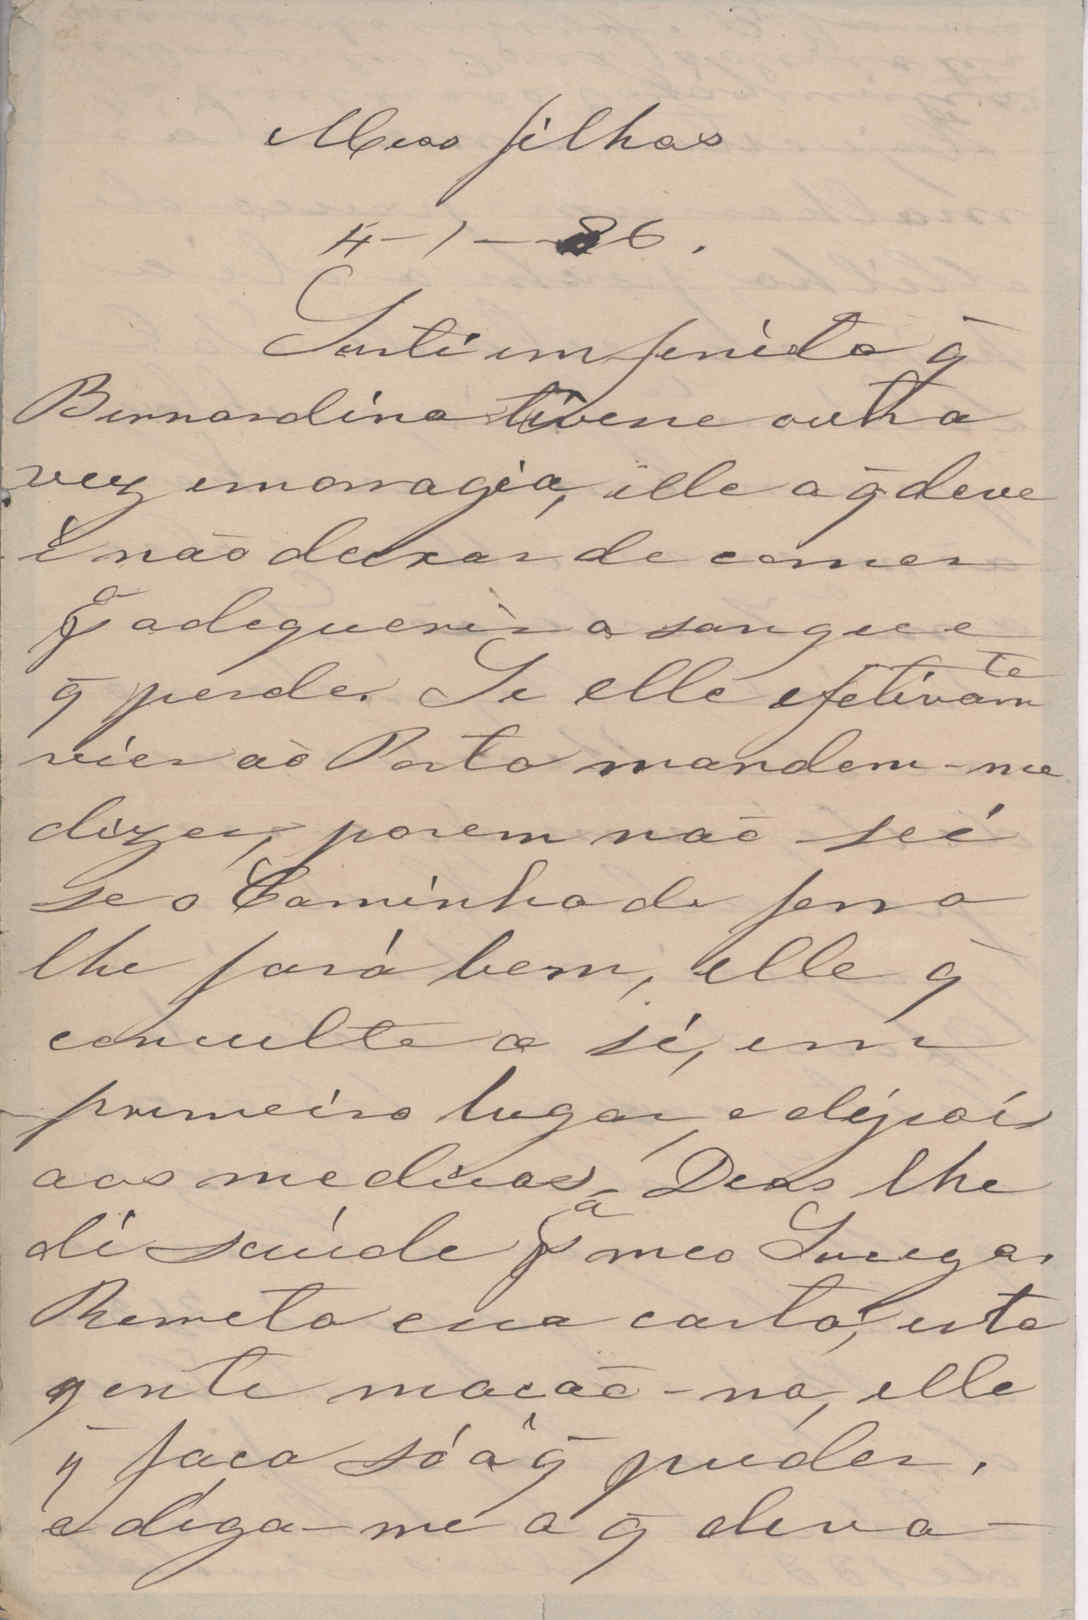 Meos filhos
4-1-86.
Senti immenso q̃
Bernardino tivesse outra
vez emorragia, elle o q̃ deve
é não deixar de comer
pª adequerir o sangue e
q̃ perde. Se elle efetivamte
vier aõ Porto mandem-me
dizer, porem naõ séi
se o Caminho de ferro
lhe fará bem, elle q̃
consulte a si, em
primeiro lugar, e dépois
aos medicos, Deos lhe
dê saúde pª meo Socego.
Remeto essa carta, esta
gente maçaõ-no, elle
q̃ faca só o q̃ puder,
e diga-me o q̃ devo